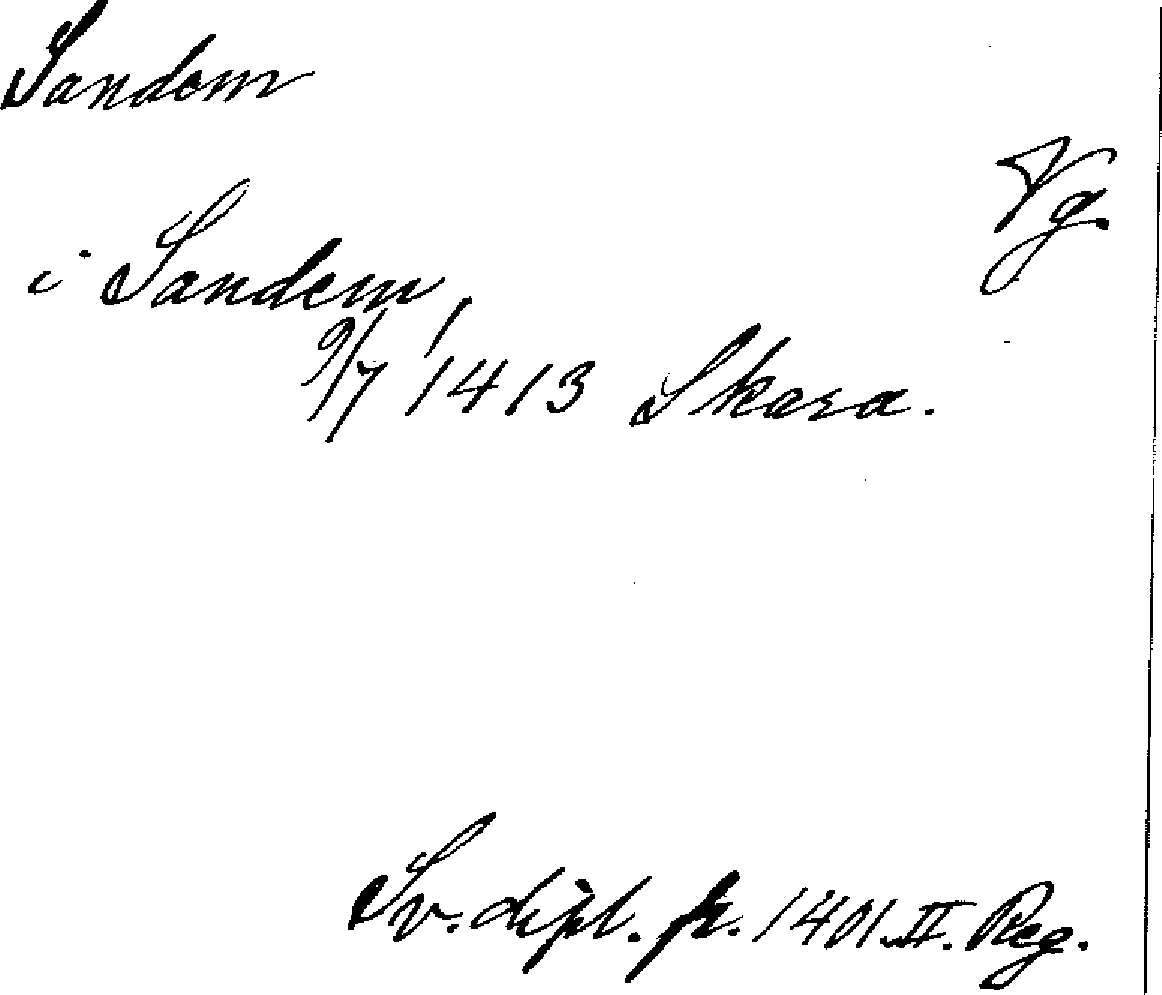 Sandem
Vg.
i Sandem,
9/7 1413 Skara.
Sv. dipl. fr. 1401. II. Reg.